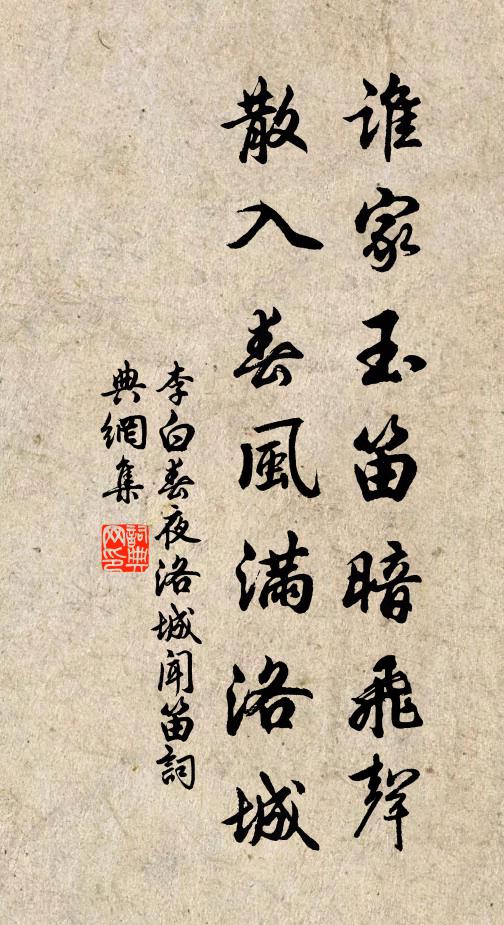 誰家玉笛暗飛聲
散入春風滿洛城
李白春夜洛城聞笛詞
典網集
詞典網印